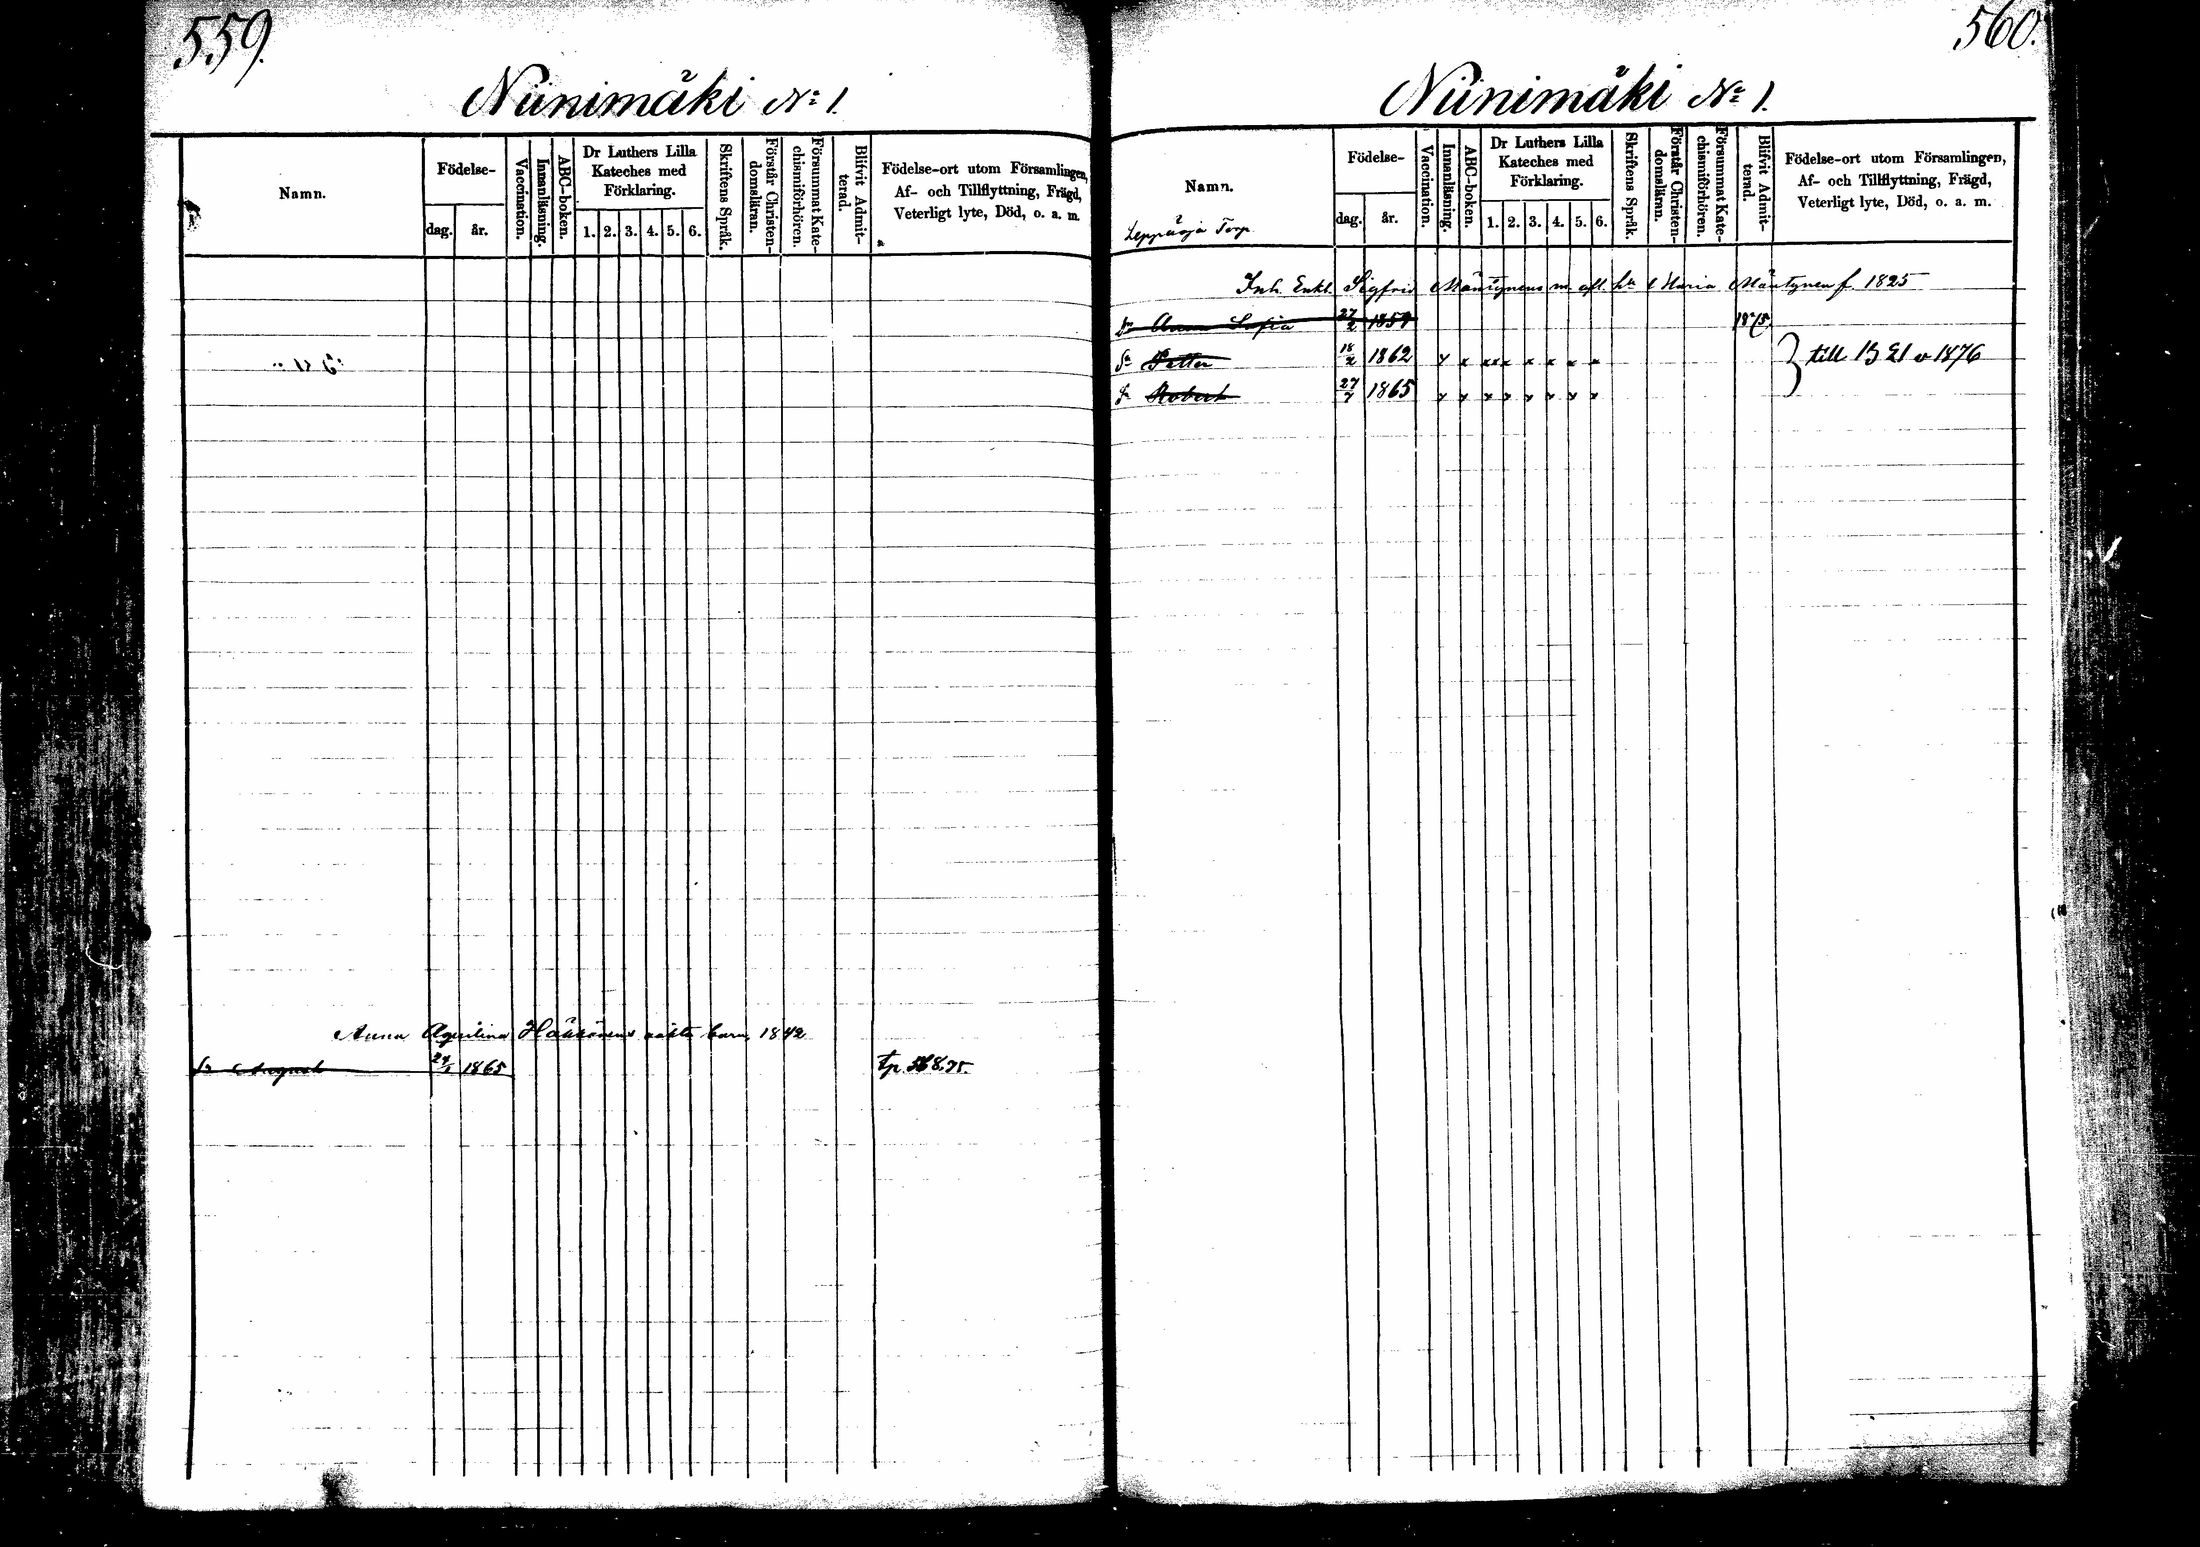 559.
Niinimäki No 1.
Namn.
Födelse-
dag.
år.
Vaccination.
Innanläsning.
ABC-boken.
Dr Luthers Lilla
Kateches med
Förklaring.
1. 2. 3. 4. 5. 6.
Skriftens Språk.
Förstår Christen-
domsläran.
Försummat Kate-
chismiförhören.
Blifvit Admit-
terad.
Födelse-ort utom Församlingen,
Af- och Tillflyttning, Frägd,
Veterligt lyte, Död, o. a. m.
Anna Aqvilina barn, 1842
Sn August 1865 tp. 568.75.
560.
Niinimäki No 1.
Namn.
Leppäoja Torp
Födelse-
dag.
år.
Vaccination.
Innanläsning.
ABC-boken.
Dr Luthers Lilla
Kateches med
Förklaring.
1. 2. 3. 4. 5. 6.
Skriftens Språk.
Förstår Christen-
domsläran.
Försummat Kate-
chismiförhören.
Blifvit Admit-
terad.
Födelse-ort utom Församlingen,
Af- och Tillflyttning, Frägd,
Veterligt lyte, Död, o. a. m.
Inh. Enkl. Sigfrid Mäntynens m. afl. hu Maria Mäntynen f. 1825
Dr Anna Sofia 27/2 1859 1875
Sn Petter 18/2 1862 x x x x x x x x till B 21 v 1876
Sn Robert 27/7 1865 x x x x x x x x